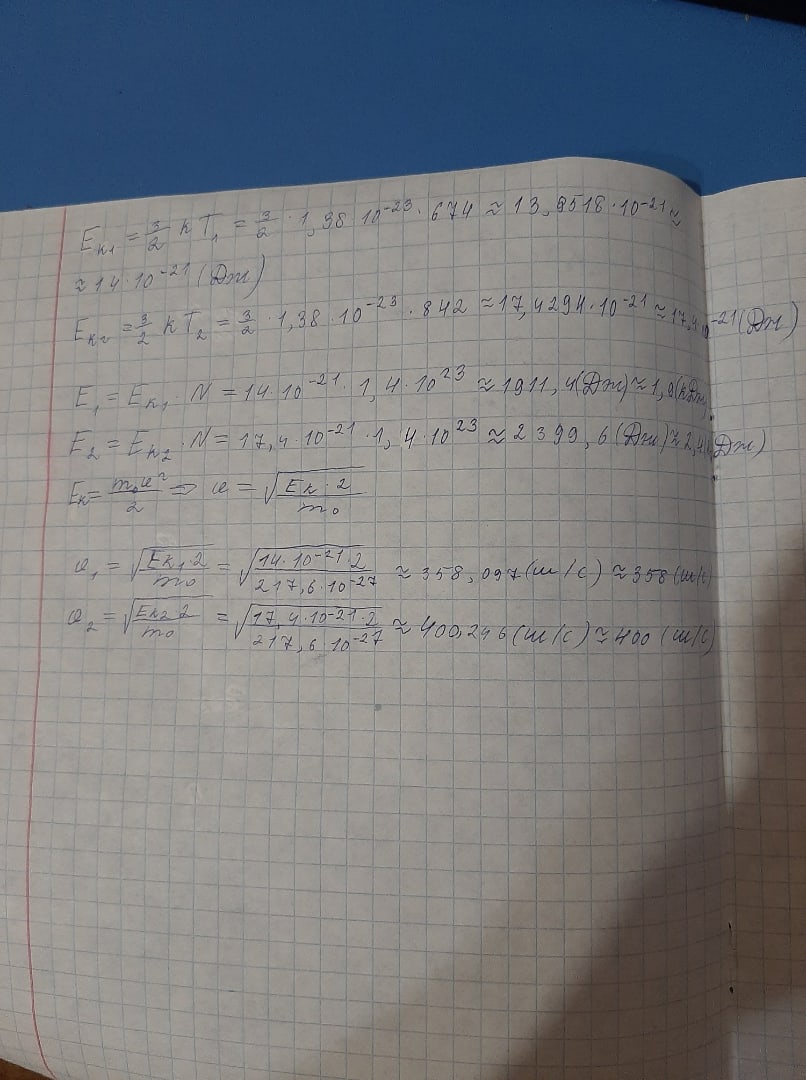 Eк₁ = 3/2 k T₁ = 3/2 · 1,38 · 10⁻²³ · 674 ≈ 13,9518 · 10⁻²¹ ≈
≈ 14 · 10⁻²¹ (Дж)
Eк₂ = 3/2 k T₂ = 3/2 · 1,38 · 10⁻²³ · 842 ≈ 17,4294 · 10⁻²¹ ≈ 17,4 · 10⁻²¹ (Дж)
E₁ = Eк₁ · N = 14 · 10⁻²¹ · 1,4 · 10²³ ≈ 1911,4 (Дж) ≈ 1,9 (кДж)
E₂ = Eк₂ · N = 17,4 · 10⁻²¹ · 1,4 · 10²³ ≈ 2399,6 (Дж) ≈ 2,4 (кДж)
Eк = m₀υ²/2 ⇒ υ = √(Eк · 2/m₀)
υ₁ = √(Eк₁ · 2/m₀) = √(14 · 10⁻²¹ · 2/217,6 · 10⁻²⁷) ≈ 358,097 (м/с) ≈ 358 (м/с)
υ₂ = √(Eк₂ · 2/m₀) = √(17,4 · 10⁻²¹ · 2/217,6 · 10⁻²⁷) ≈ 400,246 (м/с) ≈ 400 (м/с)